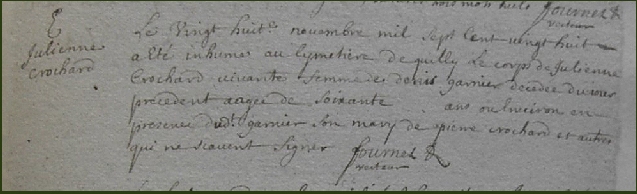 fournel &
recteur
E
Julienne
Crochard
Le Vingt huit e novembre mil sept Cent vingt huit
a Eté inhumé au Cymetière de quilly Le corps de Julienne
Crochard vivante femme de denis garnier décédée du jour
precedent aagée de soixante ans ou Environ en
presence dud. garnier son mary de pierre crochard et autres
qui ne scavent signer fournel &
recteur